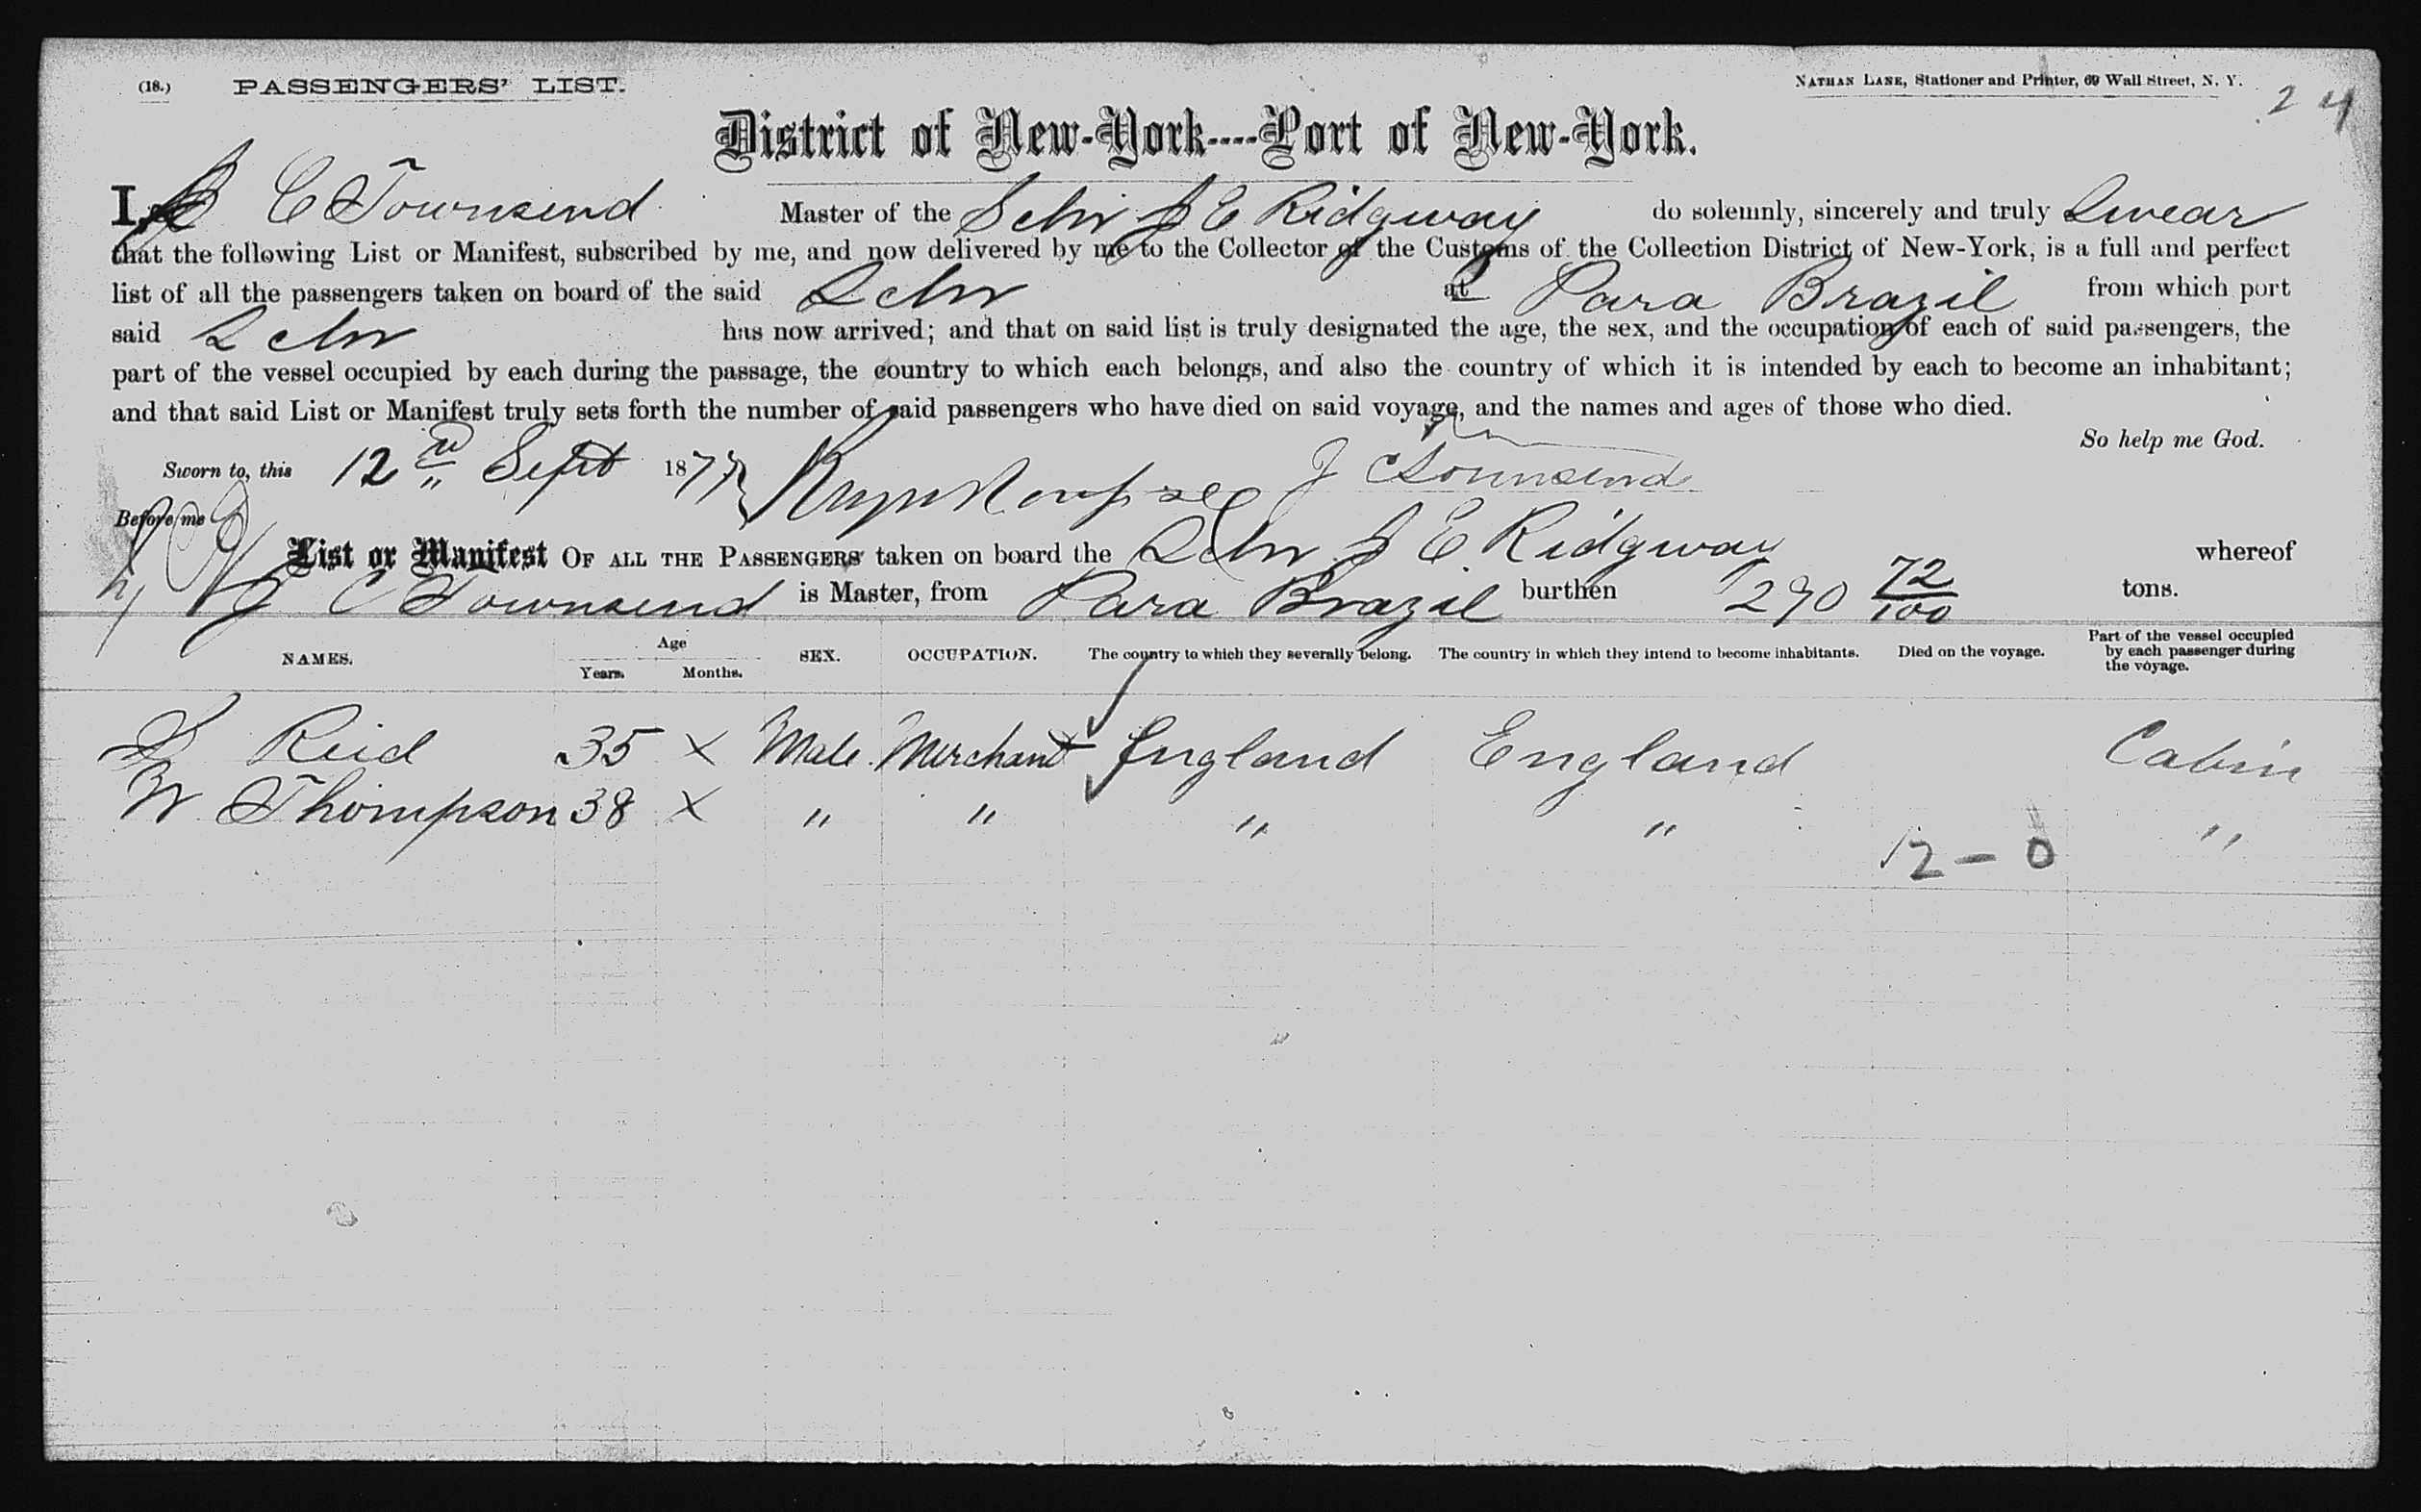 (18.) PASSENGERS' LIST. NATHAN LANE, Stationer and Printer, 69 Wall Street, N. Y.
24
District of New-York----Port of New-York.
I, J C Townsend Master of the Schr J E Ridgway do solemnly, sincerely and truly Swear
that the following List or Manifest, subscribed by me, and now delivered by me to the Collector of the Customs of the Collection District of New-York, is a full and perfect
list of all the passengers taken on board of the said Schr at Para Brazil from which port
said Schr has now arrived; and that on said list is truly designated the age, the sex, and the occupation of each of said passengers, the
part of the vessel occupied by each during the passage, the country to which each belongs, and also the country of which it is intended by each to become an inhabitant;
and that said List or Manifest truly sets forth the number of said passengers who have died on said voyage, and the names and ages of those who died.
So help me God.
Sworn to, this 12 Sept 1877 J C Townsend
Before me
List or Manifest OF ALL THE PASSENGERS taken on board the Schr J E Ridgway whereof
J C Townsend is Master, from Para Brazil burthen 290 72/100 tons.
NAMES. Age Years. Months. SEX. OCCUPATION. The country to which they severally belong. The country in which they intend to become inhabitants. Died on the voyage. Part of the vessel occupied by each passenger during the voyage.
Reid 35 x Male Merchant England England Cabin
W Thompson 38 x " " " " "
12 - 0